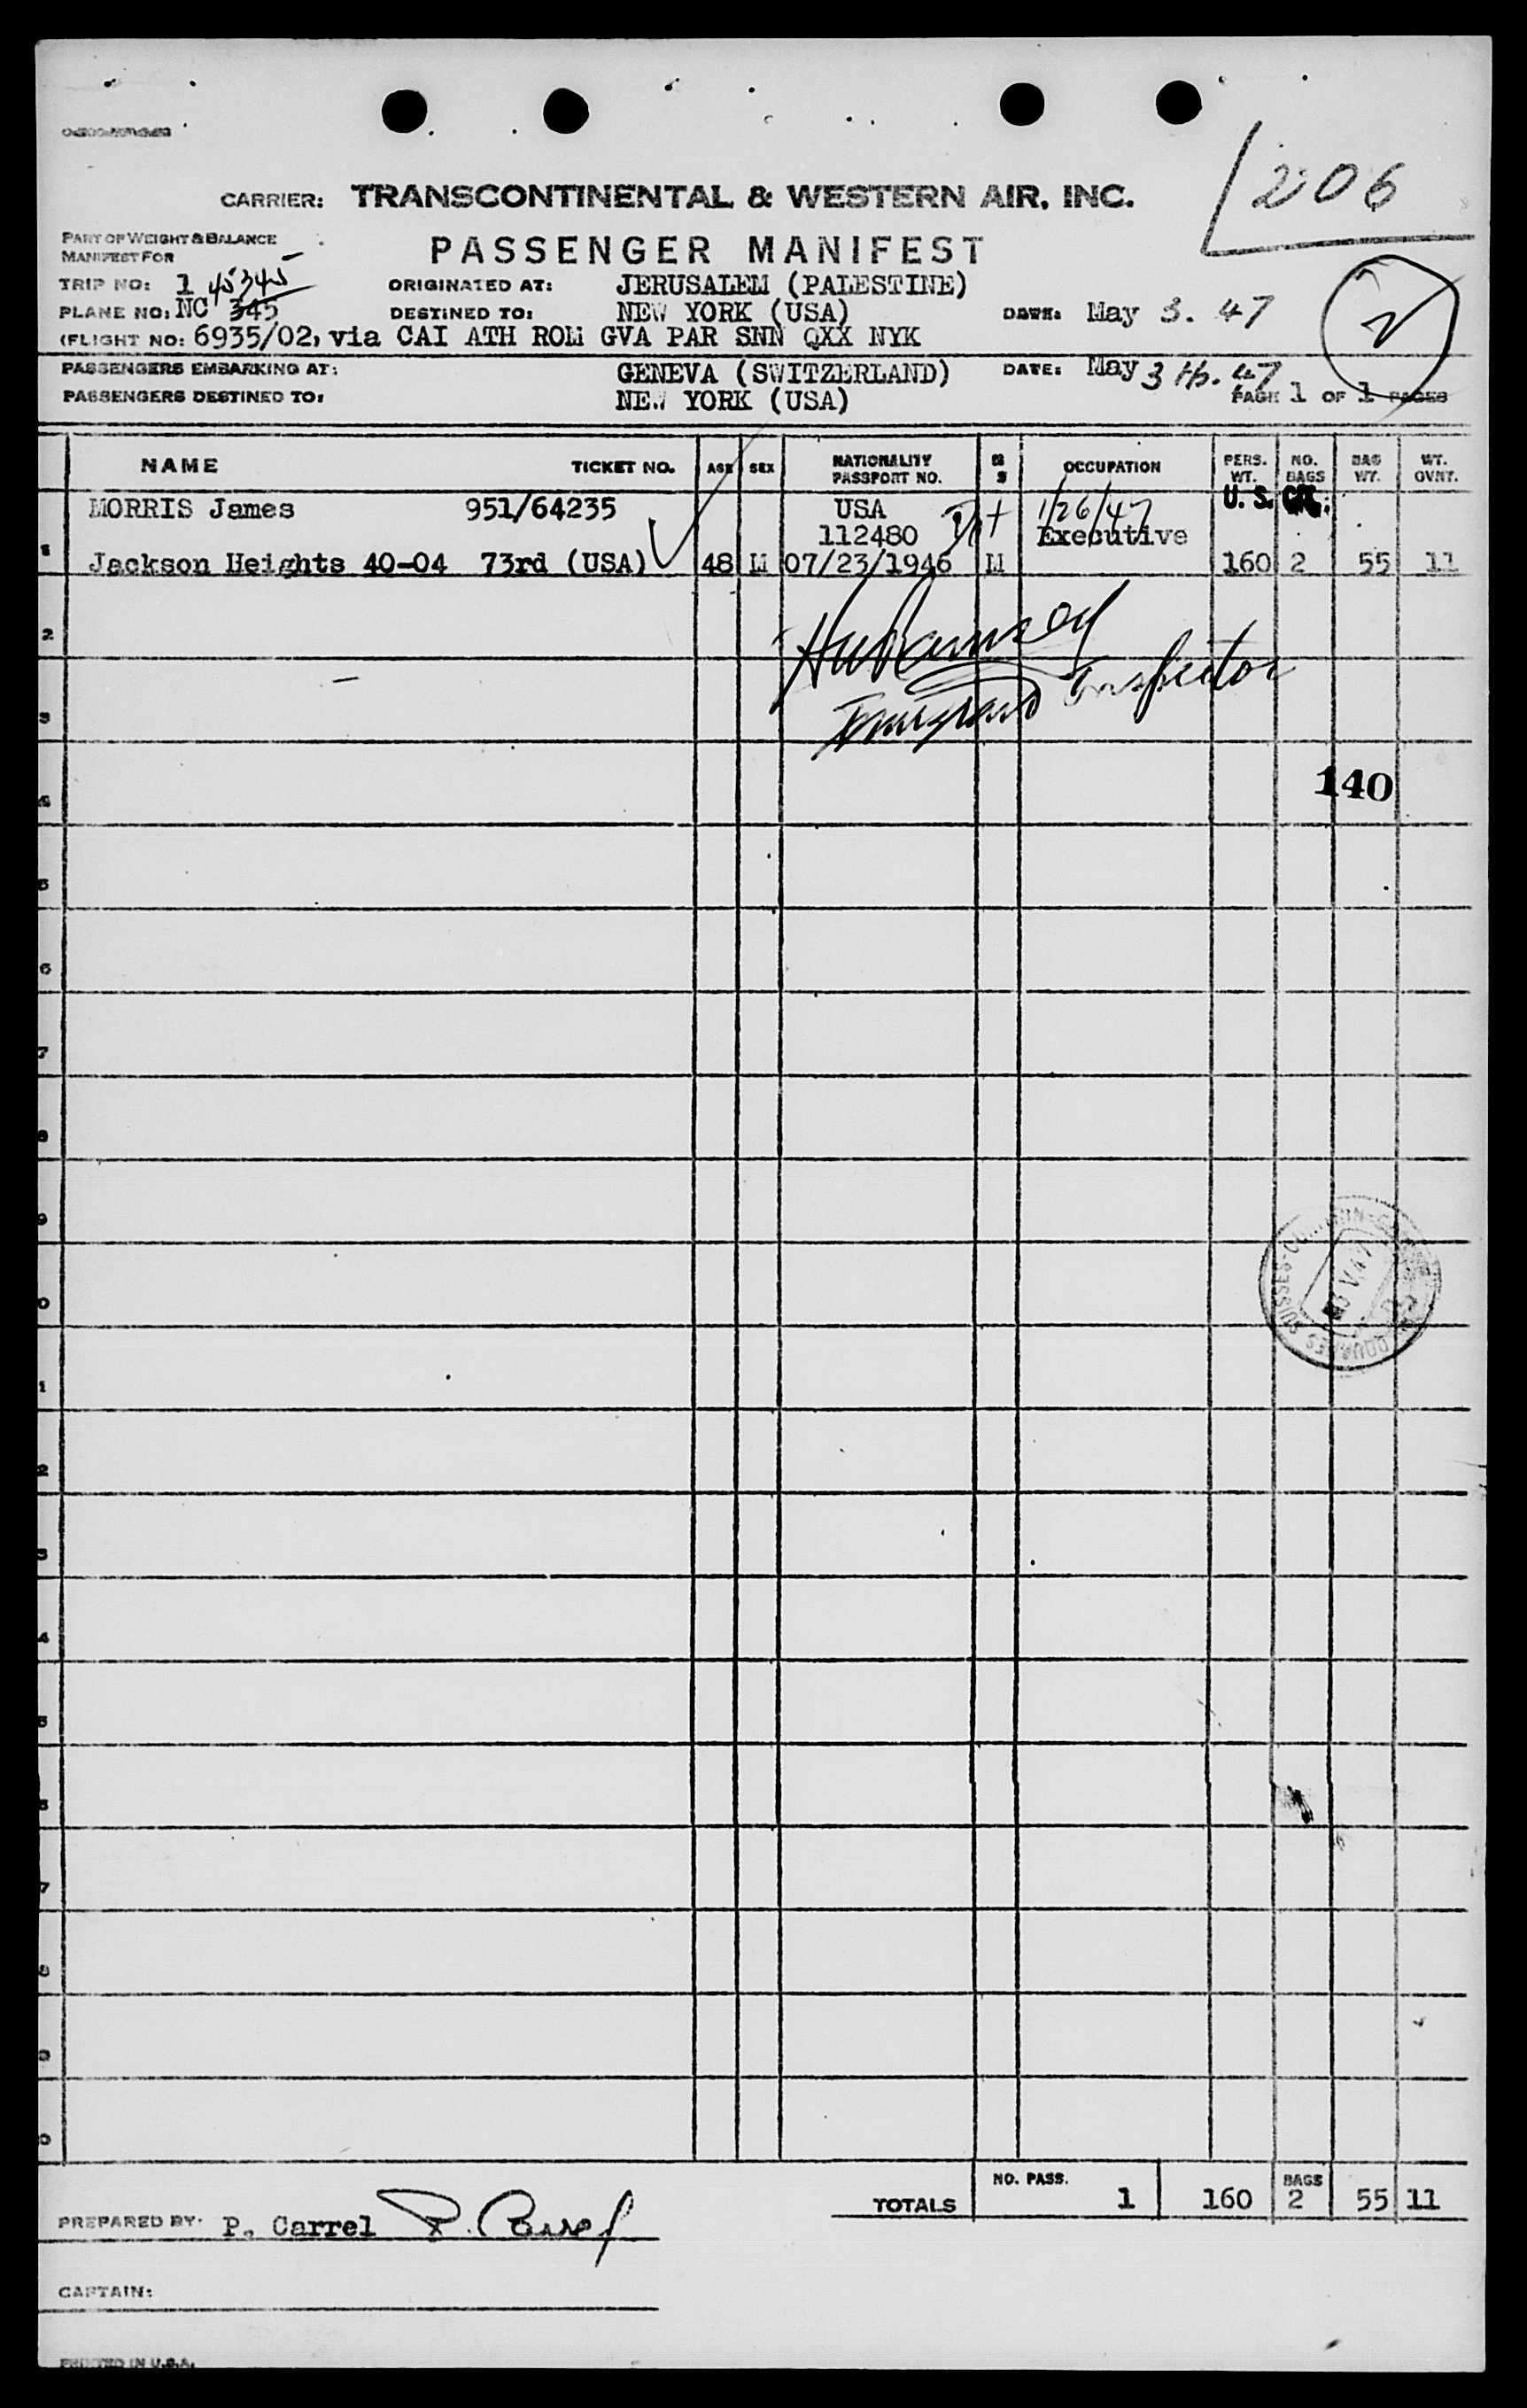 206
CARRIER: TRANSCONTINENTAL & WESTERN AIR, INC.
PART OF WEIGHT & BALANCE
MANIFEST FOR
PASSENGER MANIFEST
TRIP NO: 1 45345
ORIGINATED AT: JERUSALEM (PALESTINE)
PLANE NO: NC 345
DESTINED TO: NEW YORK (USA)
DATE: May 3. 47
2
(FLIGHT NO: 6935/02, via CAI ATH ROM GVA PAR SNN QXX NYK
PASSENGERS EMBARKING AT: GENEVA (SWITZERLAND)
DATE: May 3 th. 47
PASSENGERS DESTINED TO: NEW YORK (USA)
PAGE 1 OF 1 PAGES
NAME TICKET NO. AGE SEX NATIONALITY PASSPORT NO. M S OCCUPATION PERS. WT. NO. BAGS BAG WT. WT. OVNT.
MORRIS James 951/64235 USA 1/26/47 U. S. CIT.
112480 Executive
1 Jackson Heights 40-04 73rd (USA) 48 M 07/23/1946 M 160 2 55 11
2
Inspector
3
140
4
5
6
7
8
9
0
1
2
3
4
5
6
7
8
9
0
TOTALS NO. PASS. 1 160 BAGS 2 55 11
PREPARED BY: P. Carrel P. Carrel
CAPTAIN:
PRINTED IN U.S.A.